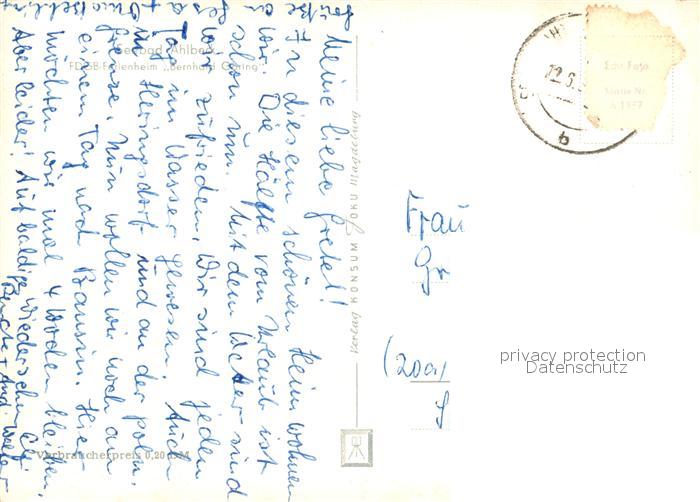 Meine liebe Gretel!
In diesem schönen Heim wohnen
wir. Die Hälfte vom Urlaub ist
schon um. Mit dem Wetter sind
wir zufrieden. Wir sind jeden
Tag im Wasser gewesen. Auch
in Heringsdorf und an der poln.
Grenze. Nun wollen wir noch an
einem Tag nach Bansin. Hier
möchten wir mal 4 Wochen bleiben.
Aber leider! Auf baldige Wiedersehen
Seebad Ahlbeck
FDGB-Ferienheim „Bernhard Göring"
Verbraucherpreis 0,20 DM
Verlag KONSUM FOKU
Frau
Gr
(20a)
12.6.
Echt Foto
A 1187
privacy protection
Datenschutz